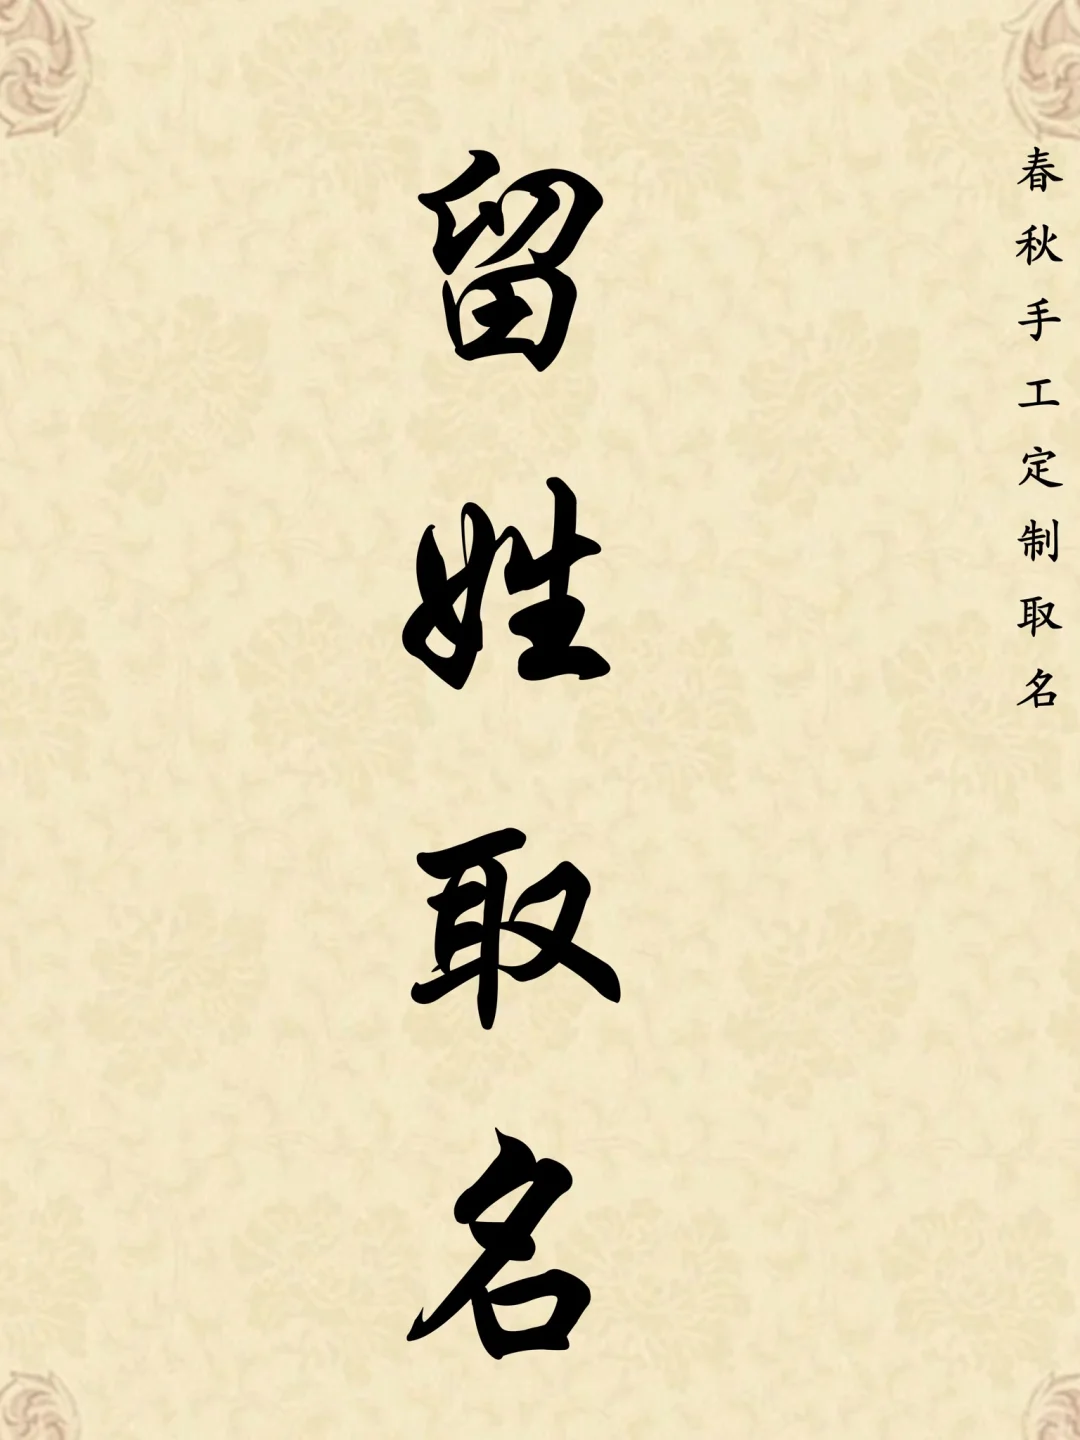 春秋手工定制取名
留姓取名